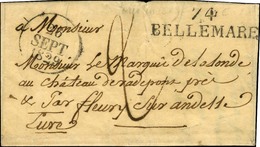 74
BELLEMARE
SEPT
à Monsieur
Monsieur Le Marquis de
au Château de
& par fleury sur andelle
Eure
2